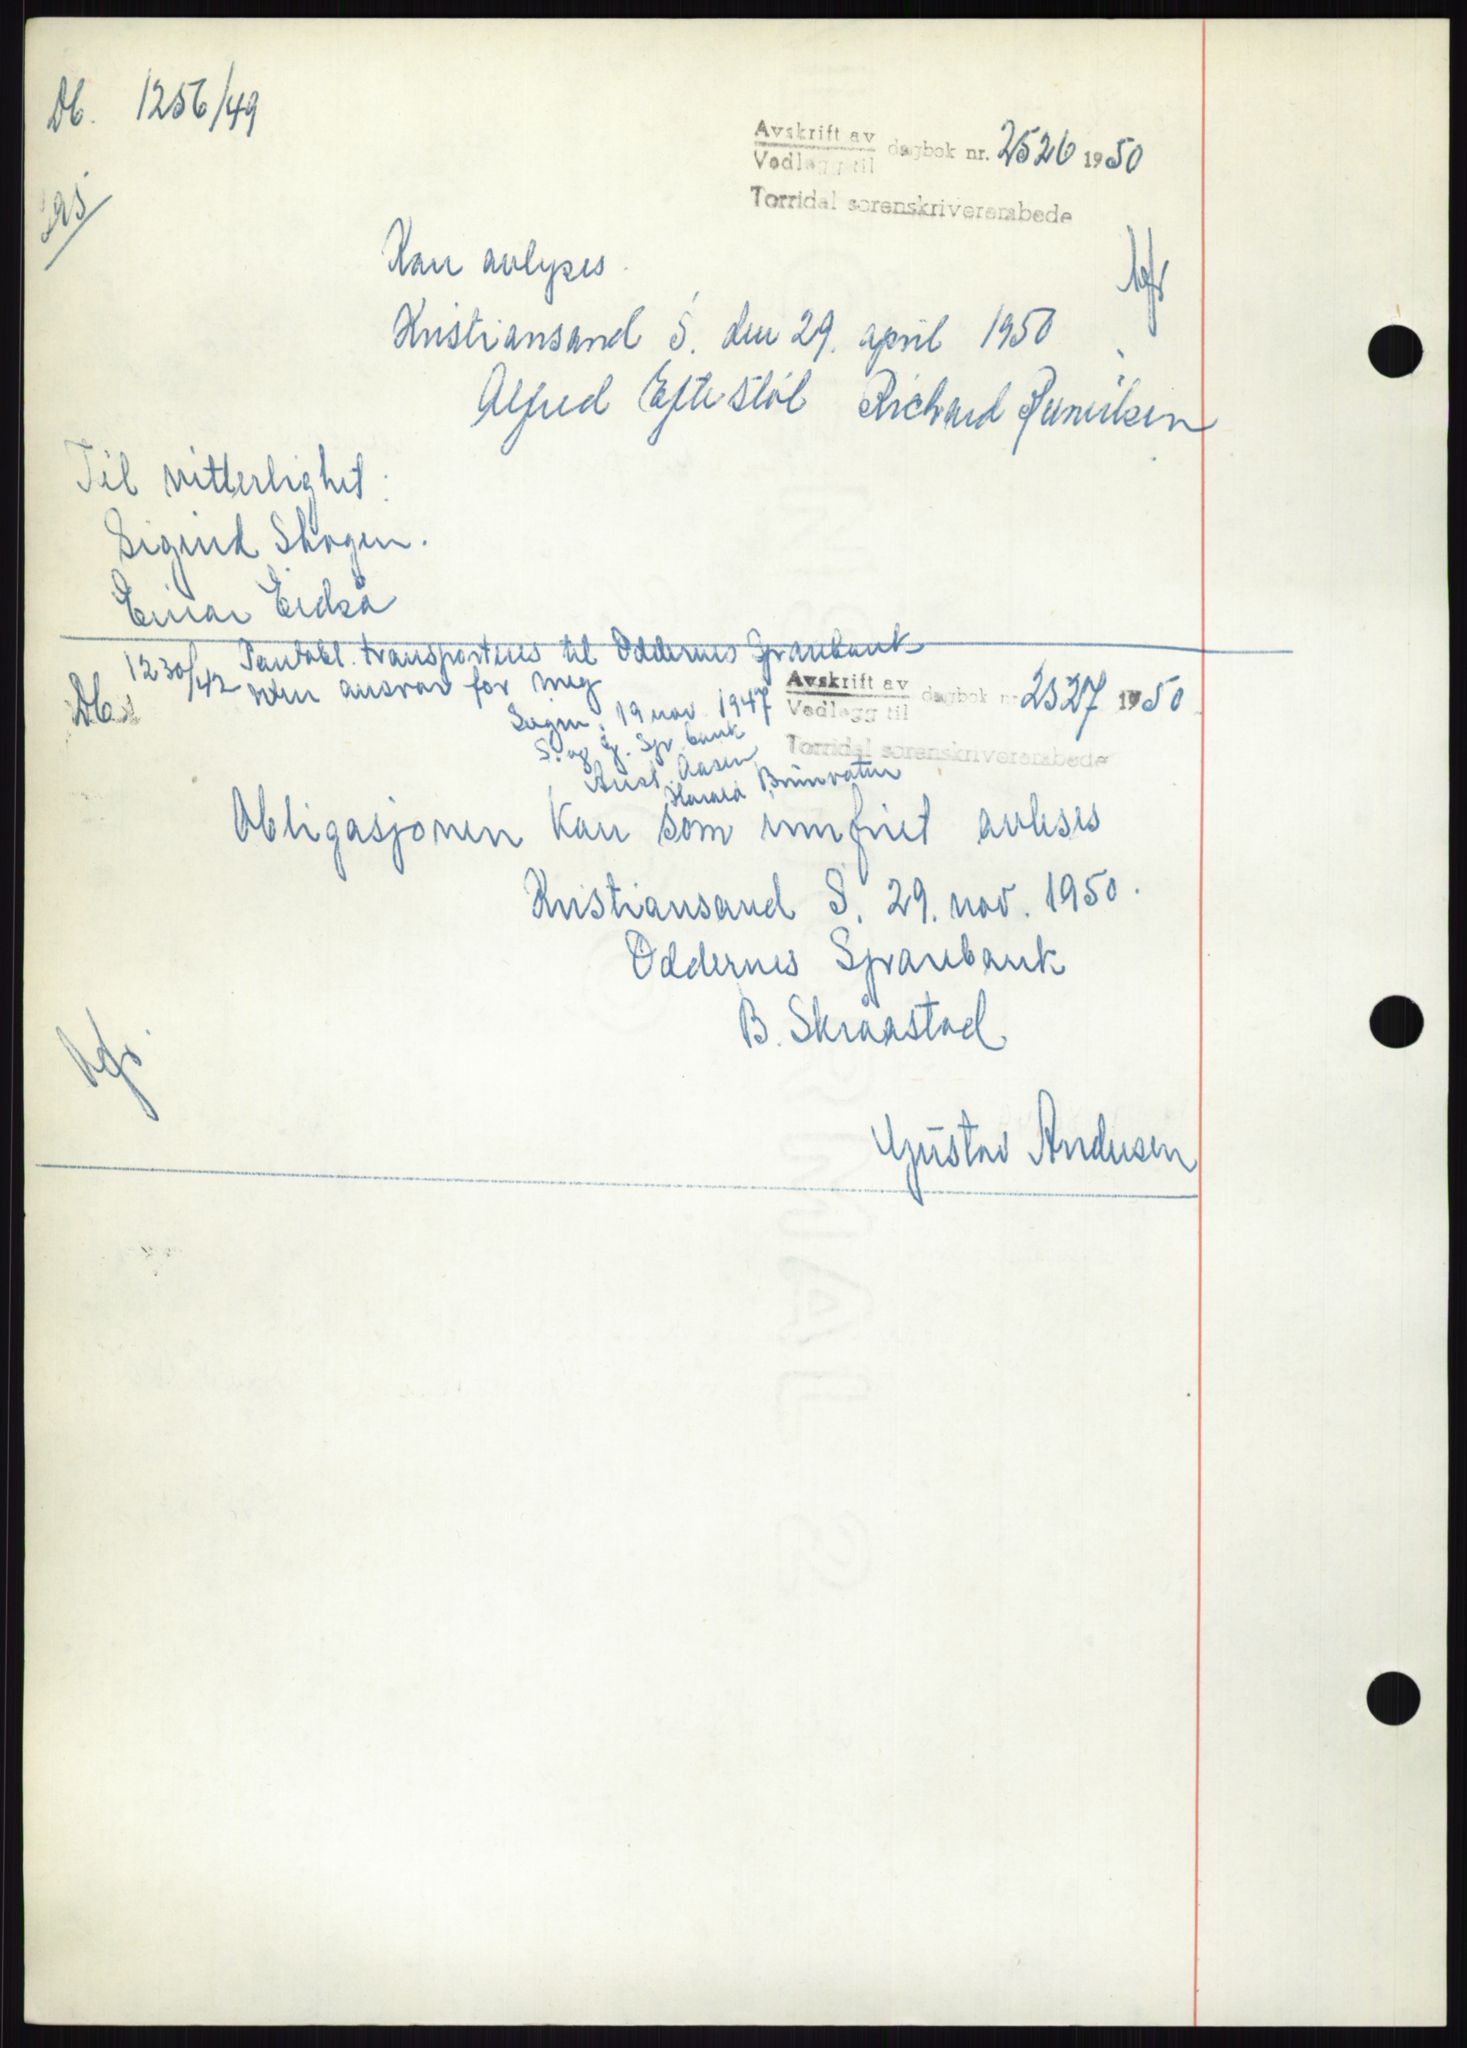 Db. 1256/49
Avskrift av
Vedlegg til dagbok nr. 2526 1950
Torridal sorenskriverembede
Kan avlyses.
Kristiansand S. den 29. april 1950
Alfred Eftestöl Richard
Til vitterlighet:
Sigurd Skogen.
Einar Eidså
Db. 1230/42 Pantobl. transporteres til Oddernes Sparebank
uten ansvar for meg
Avskrift av
Vedlegg til dagbok nr. 2527 1950
Torridal sorenskriverembede
19 nov. 1947
S. og G. Spr. bank
Aasen
Harald Brunvatne
Obligasjonen kan som innfriet avleses
Kristiansand S. 29. nov. 1950.
Oddernes Sparebank
B. Skråastad
Gustav Andersen